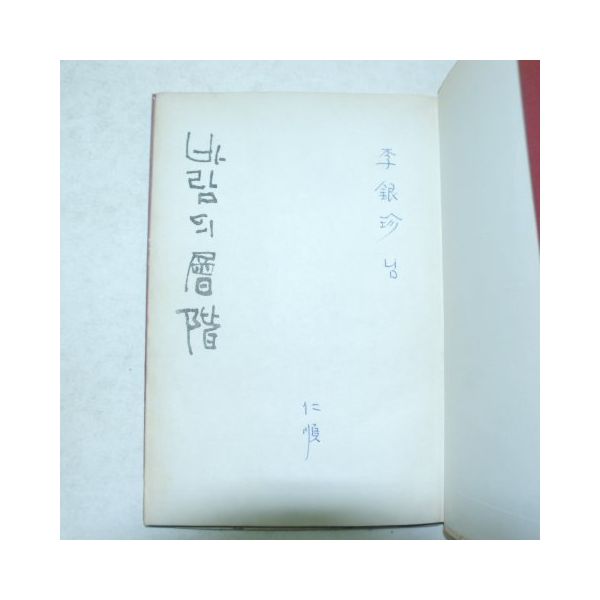 바람의層階
李銀珍 님
仁順